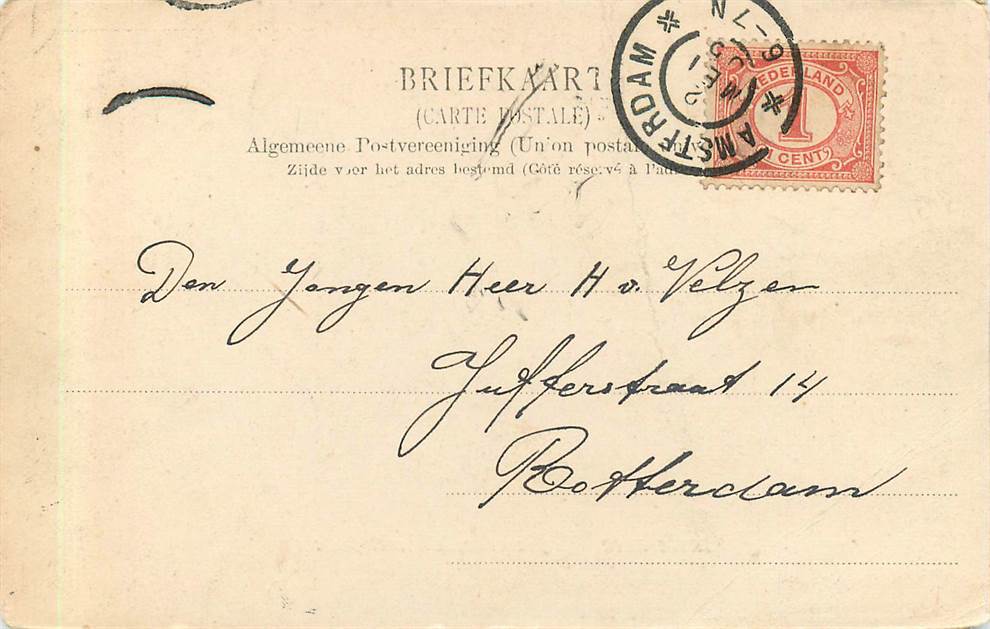 BRIEFKAART
(CARTE POSTALE)
Algemeene Postvereeniging (Union postale univ
Zijde voor het adres bestemd (Côté réservé à l'adr
AMSTERDAM
6-7N
2 MEI
NEDERLAND
1
1 CENT
Den Jongen Heer H v. Velzen
Jufferstraat 14
Rotterdam